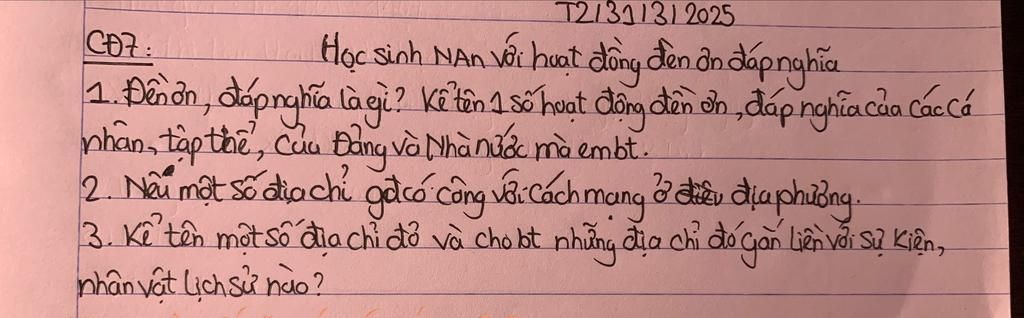 T2/31/3/2025
CĐ7: Học sinh NAn với hoạt động đền ơn đáp nghĩa
1. Đền ơn, đáp nghĩa là gì? Kể tên 1 số hoạt động đền ơn, đáp nghĩa của các cá
nhân, tập thể, của Đảng và Nhà nước mà em bt.
2. Nêu một số địa chỉ gđ có công với cách mạng ở địa phương.
3. Kể tên một số địa chỉ đỏ và cho bt những địa chỉ đó gắn liền với sự kiện,
nhân vật lịch sử nào?